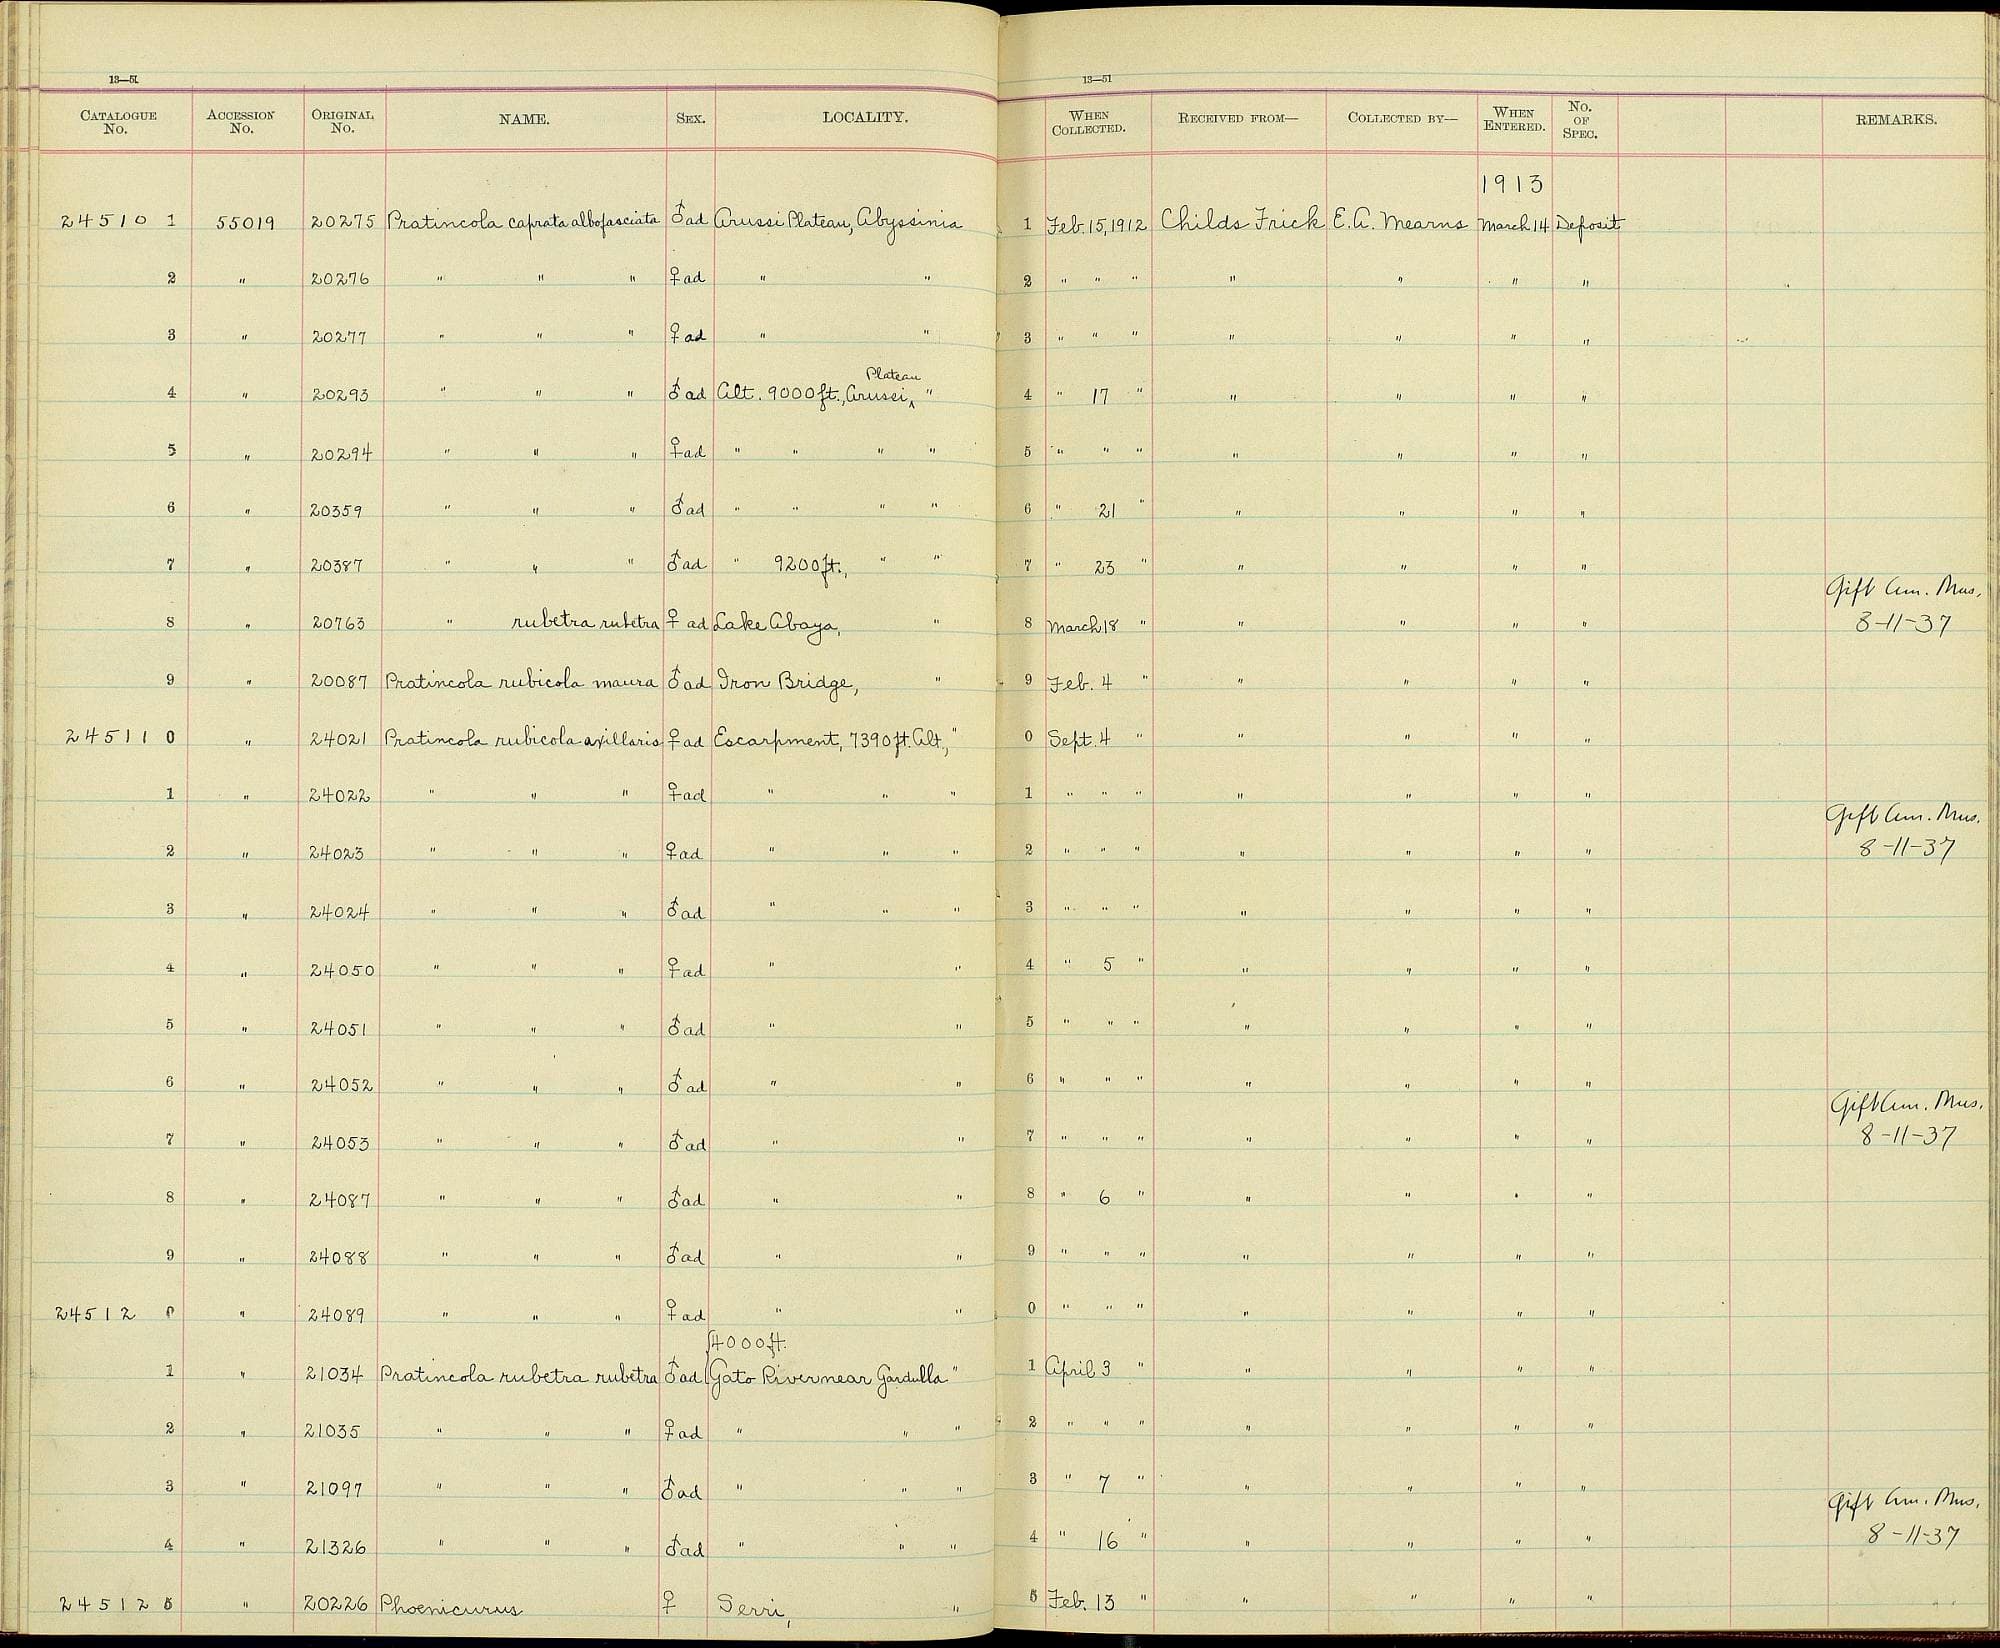 13—51
CATALOGUE No. ACCESSION No. ORIGINAL No. NAME. SEX. LOCALITY.
24510 1 55019 20275 Pratincola caprata albofasciata ♂ad Arussi Plateau, Abyssinia
2 " 20276 " " " ♀ad " "
3 " 20277 " " " ♀ad " "
Plateau
4 " 20293 " " " ♂ad Alt. 9000ft., Arussi, ^ "
5 " 20294 " " " ♀ad " " " "
6 " 20359 " " " ♂ad " " " "
7 " 20387 " " " ♂ad " 9200ft., " "
8 " 20763 " rubetra rubetra ♀ ad Lake Abaya, "
9 " 20087 Pratincola rubicola maura ♂ad Iron Bridge, "
24511 0 " 24021 Pratincola rubicola axillaris ♀ad Escarpment, 7390ft. Alt., "
1 " 24022 " " " ♀ad " " "
2 " 24023 " " " ♀ad " " "
3 " 24024 " " " ♂ad " " "
4 " 24050 " " " ♀ad " "
5 " 24051 " " " ♂ad " "
6 " 24052 " " " ♂ad " "
7 " 24053 " " " ♂ad " "
8 " 24087 " " " ♂ad " "
9 " 24088 " " " ♂ad " "
24512 0 " 24089 " " " ♀ad " "
4000ft.
1 " 21034 Pratincola rubetra rubetra ♂ad Gato River near Gardulla "
2 " 21035 " " " ♀ad " " "
3 " 21097 " " " ♂ad " " "
4 " 21326 " " " ♂ad " " "
24512 5 " 20226 Phoenicurus ♀ Serri, "
13—51
WHEN COLLECTED. RECEIVED FROM— COLLECTED BY— WHEN ENTERED. No. OF SPEC. REMARKS.
1913
1 Feb. 15, 1912 Childs Frick E. A. Mearns March 14 Deposit
2 " " " " " " "
3 " " " " " " "
4 " 17 " " " " "
5 " " " " " " "
6 " 21 " " " " "
7 " 23 " " " " "
Gift Am. Mus.
8 March 18 " " " " " 8-11-37
9 Feb. 4 " " " " "
0 Sept. 4 " " " " "
1 " " " " " " "
Gift Am. Mus.
2 " " " " " " " 8-11-37
3 " " " " " " "
4 " 5 " " " " "
5 " " " " " " "
6 " " " " " " "
Gift Am. Mus.
7 " " " " " " " 8-11-37
8 " 6 " " " " "
9 " " " " " " "
0 " " " " " " "
1 April 3 " " " " "
2 " " " " " " "
3 " 7 " " " " "
Gift Am. Mus.
4 " 16 " " " " " 8-11-37
5 Feb. 13 " " " " "